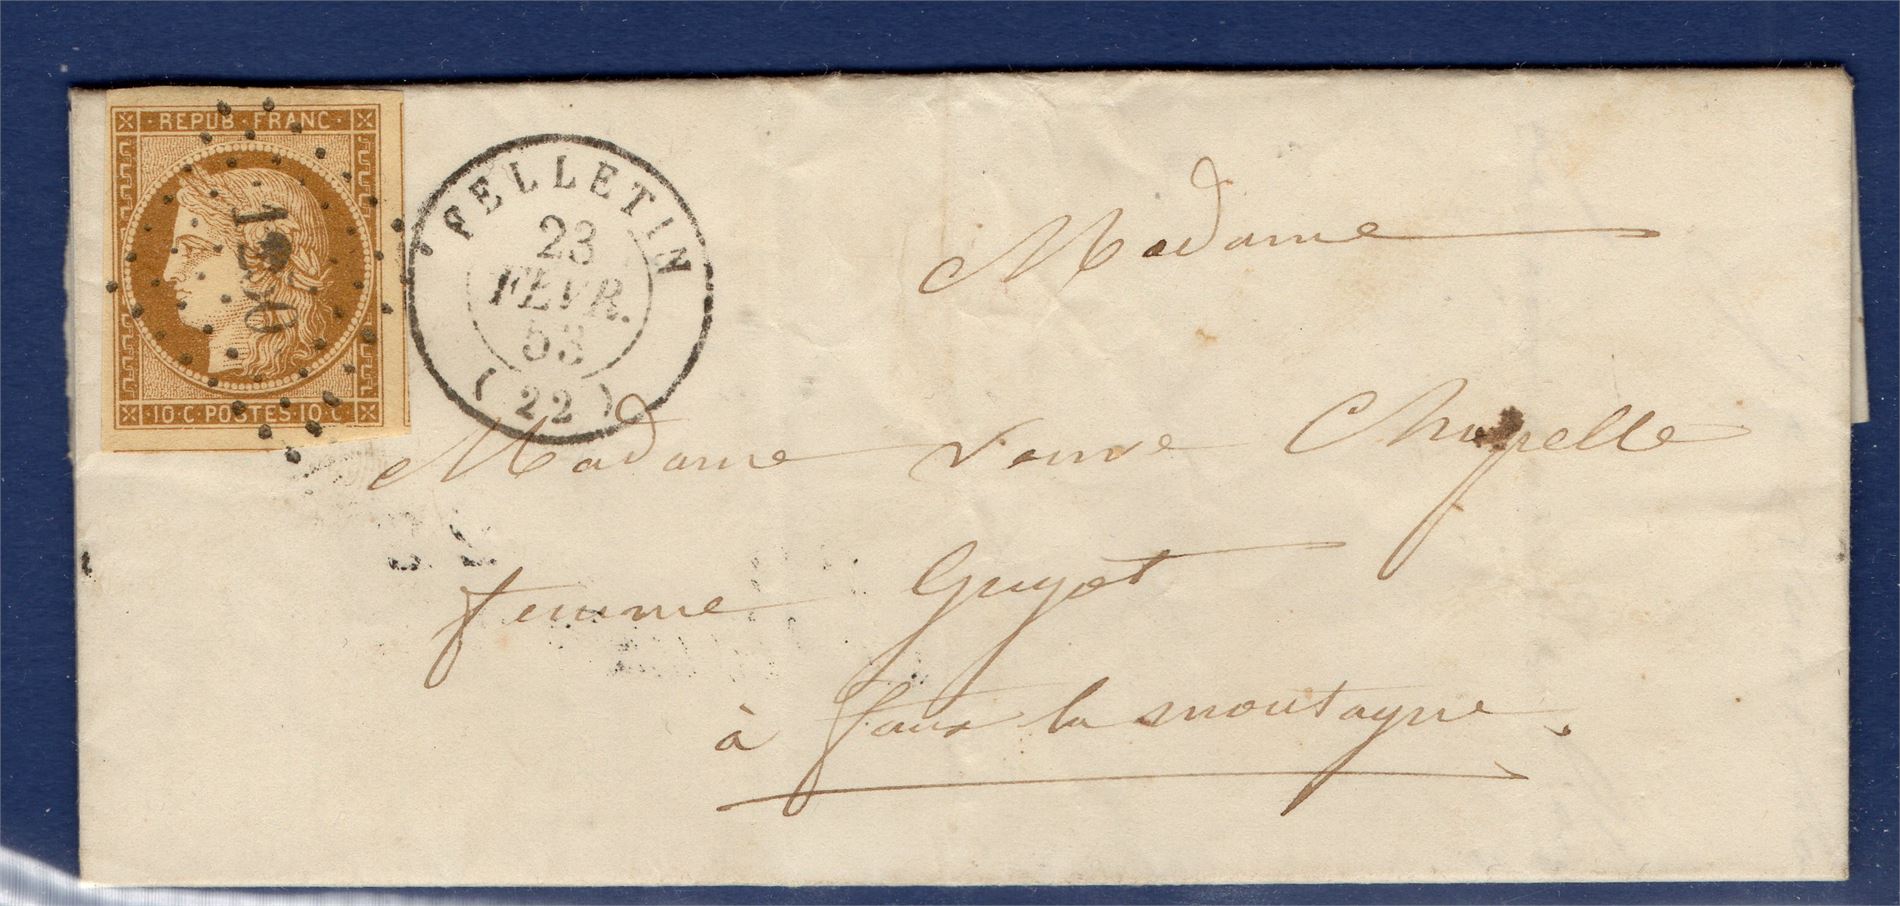 REPUB · FRANC
10·C·POSTES·10·C
FELLETIN
23
FEVR.
53
(22)
Madame
Madame veuve Chapelle
femme Guyot
à faux la montagne.